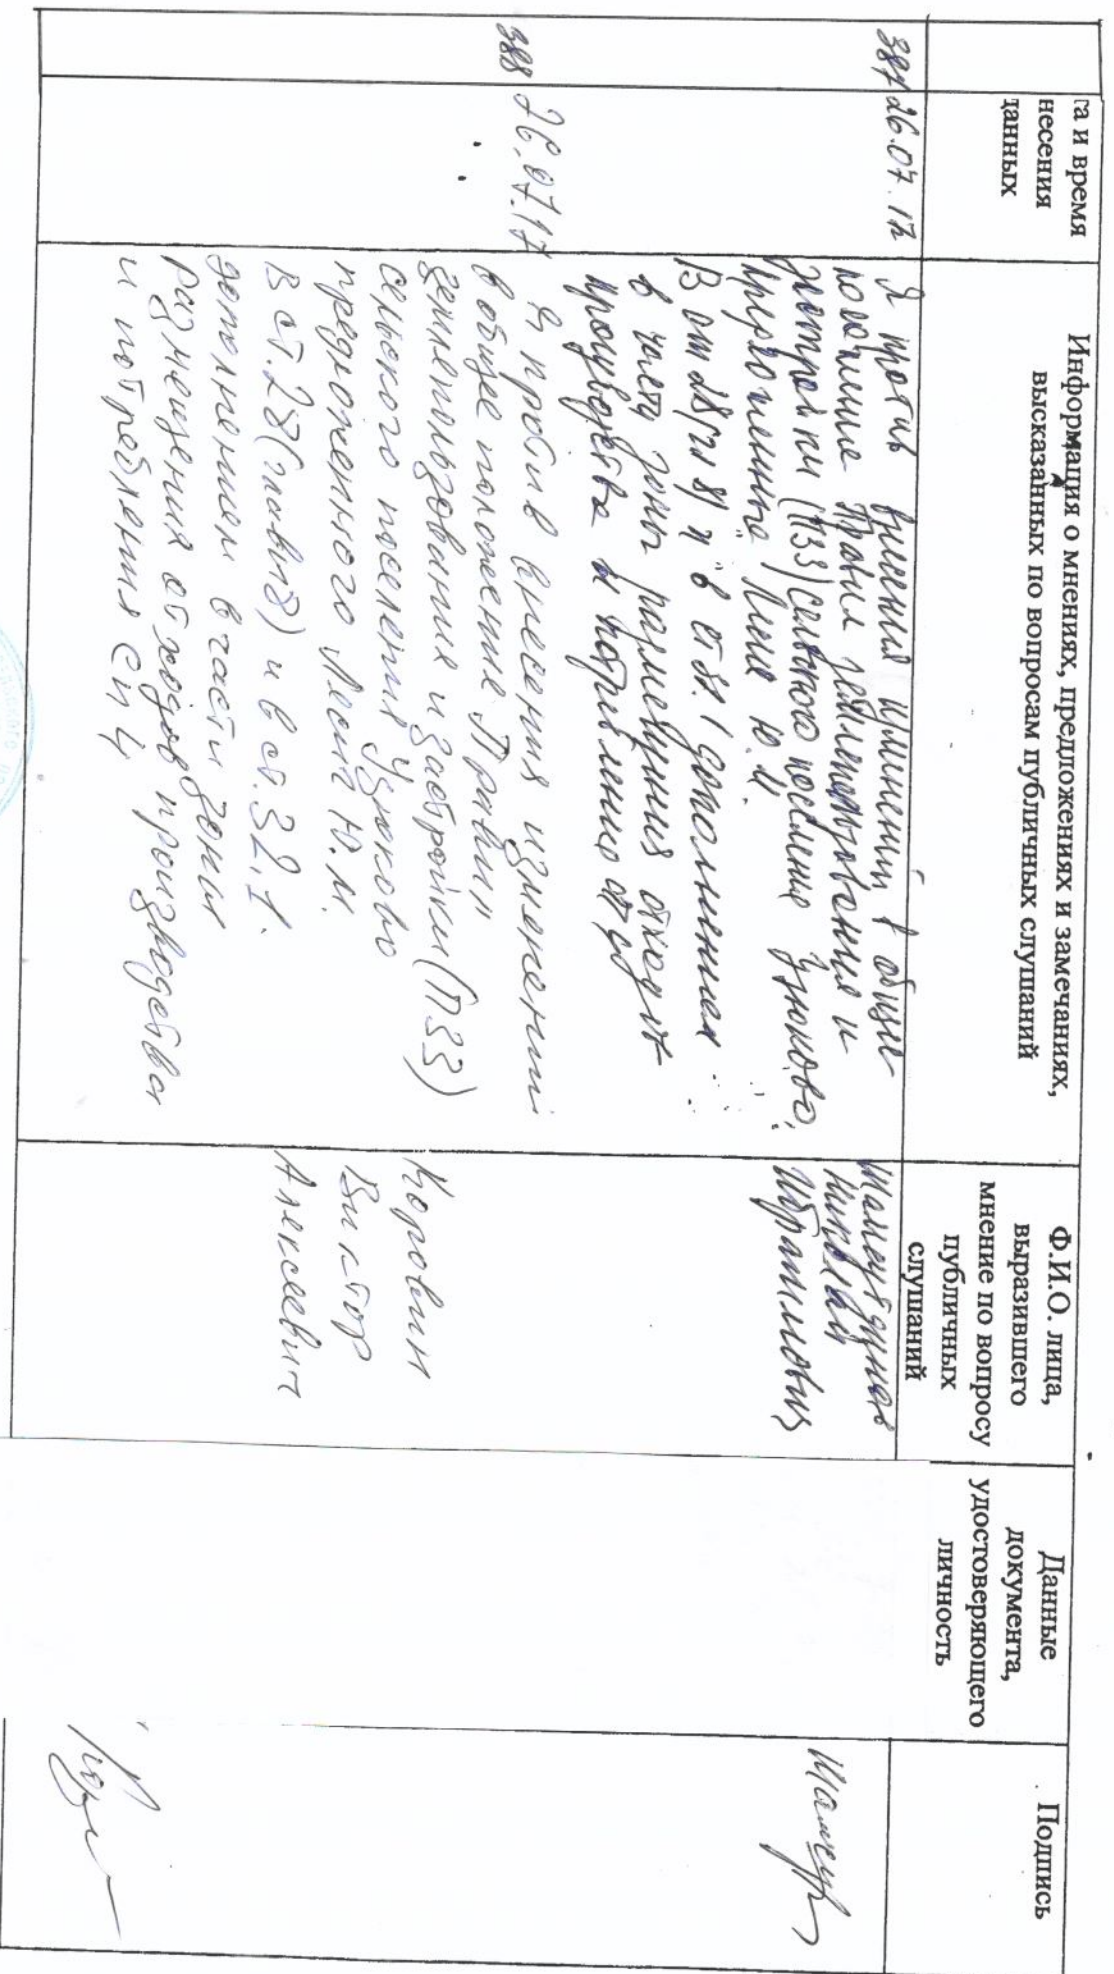 та и время
несения
данных
Информация о мнениях, предложениях и замечаниях,
высказанных по вопросам публичных слушаний
Ф.И.О. лица,
выразившего
мнение по вопросу
публичных
слушаний
Данные
документа,
удостоверяющего
личность
Подпись
387
26.07.17
Я против внесения изменений в общие
положение Правил землепользования и
застройки (ПЗЗ) сельского поселение Узюково,
предложенные Леше Ю.М.
в части зоны размещения отходов
производства и
Николай
Ибрагимович
388
26.07.17
Я против внесения изменений
в общее положение "Правил"
землепользование и застройки (ПЗЗ)
сельского поселения Узюково
предложенного Ю.М.
В ст. 28 (глава 8) и в ст. 32.1.
дополнением в части зоны
размещения отходов производства
и потребления СП4
Коровин
Виктор
Алексеевич